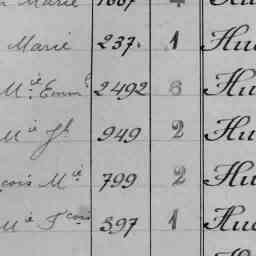 Marie 1667 4 Hu
Marie 237. 1 Hu
Mie Emm 2492 6 Hu
Mie Jh 949 2 Hu
cois Mie 799 2 Hu
Mie Fcois 597 1 Hu